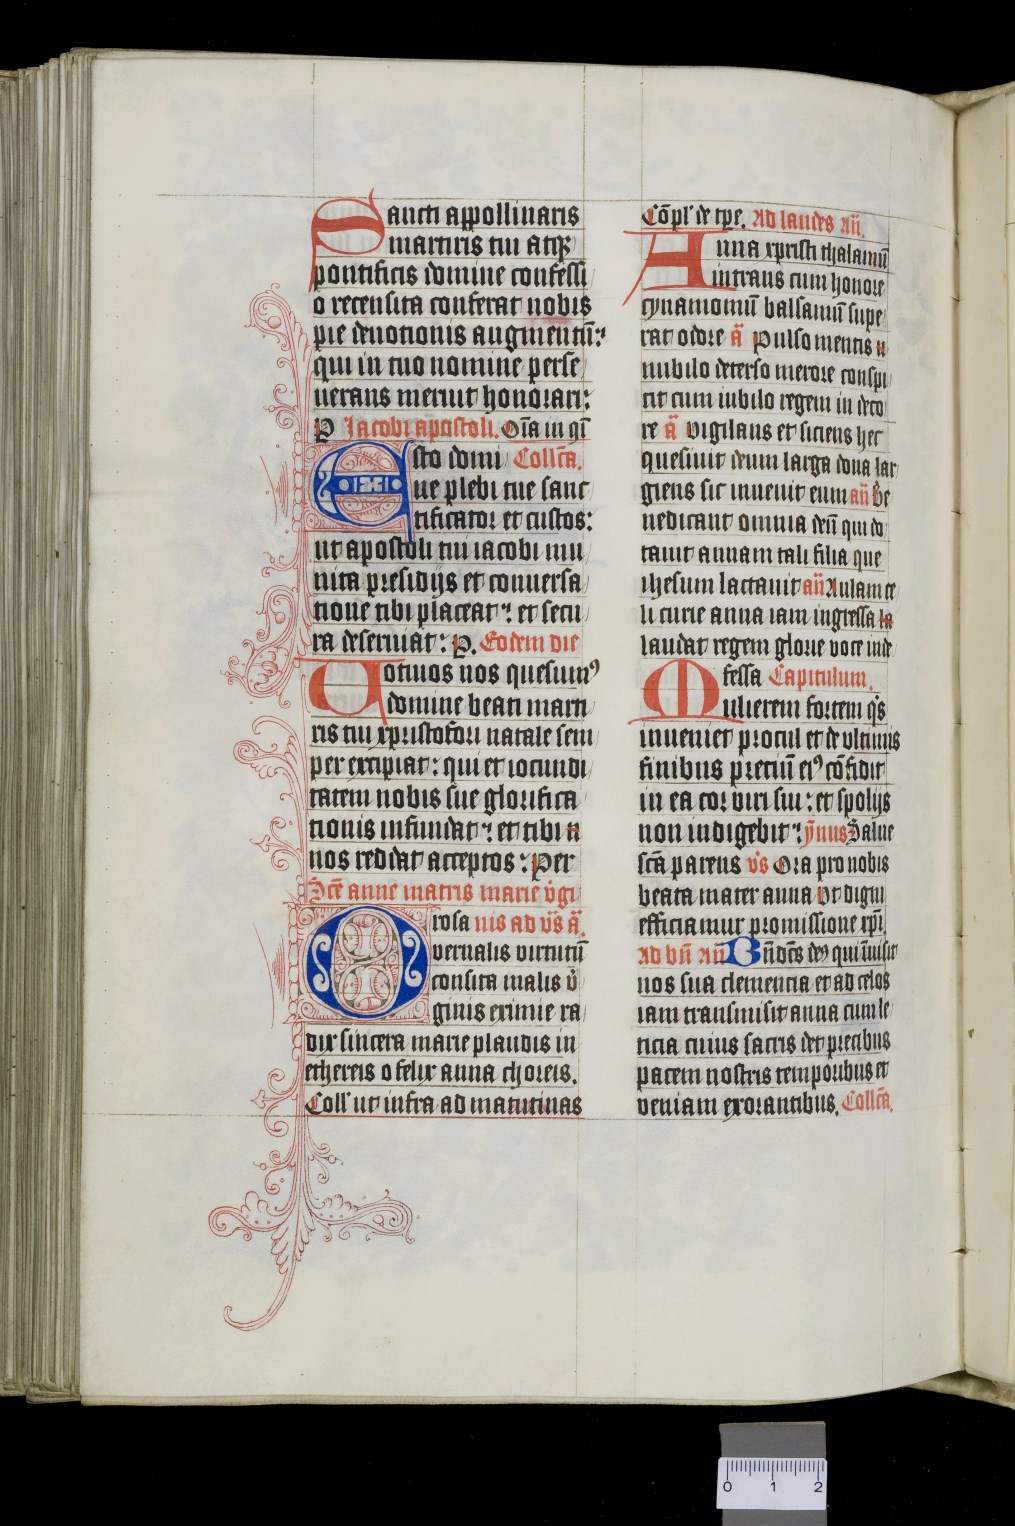 Sancti appollinaris
martiris tui atqꝫ
pontificis domine confessi
o recensita conferat nobis
pie deuotionis augmentū:
qui in tuo nomine perse
uerans meruit honorari:
P Jacobi apostoli. Oīa in qͥ
sto domī Collcā.
Esto domine plebi tue sanc
tificator et custos:
ut apostoli tui iacobi mu
nita presidijs et conuersa
tione tibi placeat: et secu
ra deseruiat: P. Eodem die
Uotiuos nos quesumꝰ
domine beati marti
ris tui xpristofori natale sem
per excipiat: qui et iocundi
tatem nobis sue glorifica
tionis infundat: et tibi
nos reddat acceptos: Per
Scē anne matris marie v̓gi
O rosa nis ad v̓s ā.
vernalis virtutū
consita malis v̓
ginis eximie ra
dix sincera marie plaudis in
ethereis o felix anna choreis.
Coll' ut infra ad matutinas
Cōpl' de tpe. Ad laudes añ.
Anna xpristi thalamū
intrans cum honore
cynamomū balsamū supe
rat odore ā Pulso mentis
nubilo deterso merore conspi
cit cum iubilo regem in deco
re ā vigilans et siciens hec
quesiuit deum larga dona lar
giens sic inuenit eum añ Be
nedicant omnia deū qui do
tauit annam tali filia que
ihesum lactauit añ Aulam ce
li curie anna iam ingressa
laudat regem glorie voce inde
fessa Capitulum.
Mulierem fortem qͥs
inueniet procul et de vltimis
finibus preciū eiꝰ cōfidit
in ea cor viri sui: et spolijs
non indigebit: ȳnus Salue
scā parens v̓s Ora pro nobis
beata mater anna Vt digni
efficiamur promissione xpī.
Ad bñ añ Bñdcs̄ deꝰ qui īuisit
nos sua clemencia et ad celos
iam transmisit anna cum le
ticia cuius sacris det precibus
pacem nostris temporibus et
veniam exorantibus. Collcā.
0 1 2